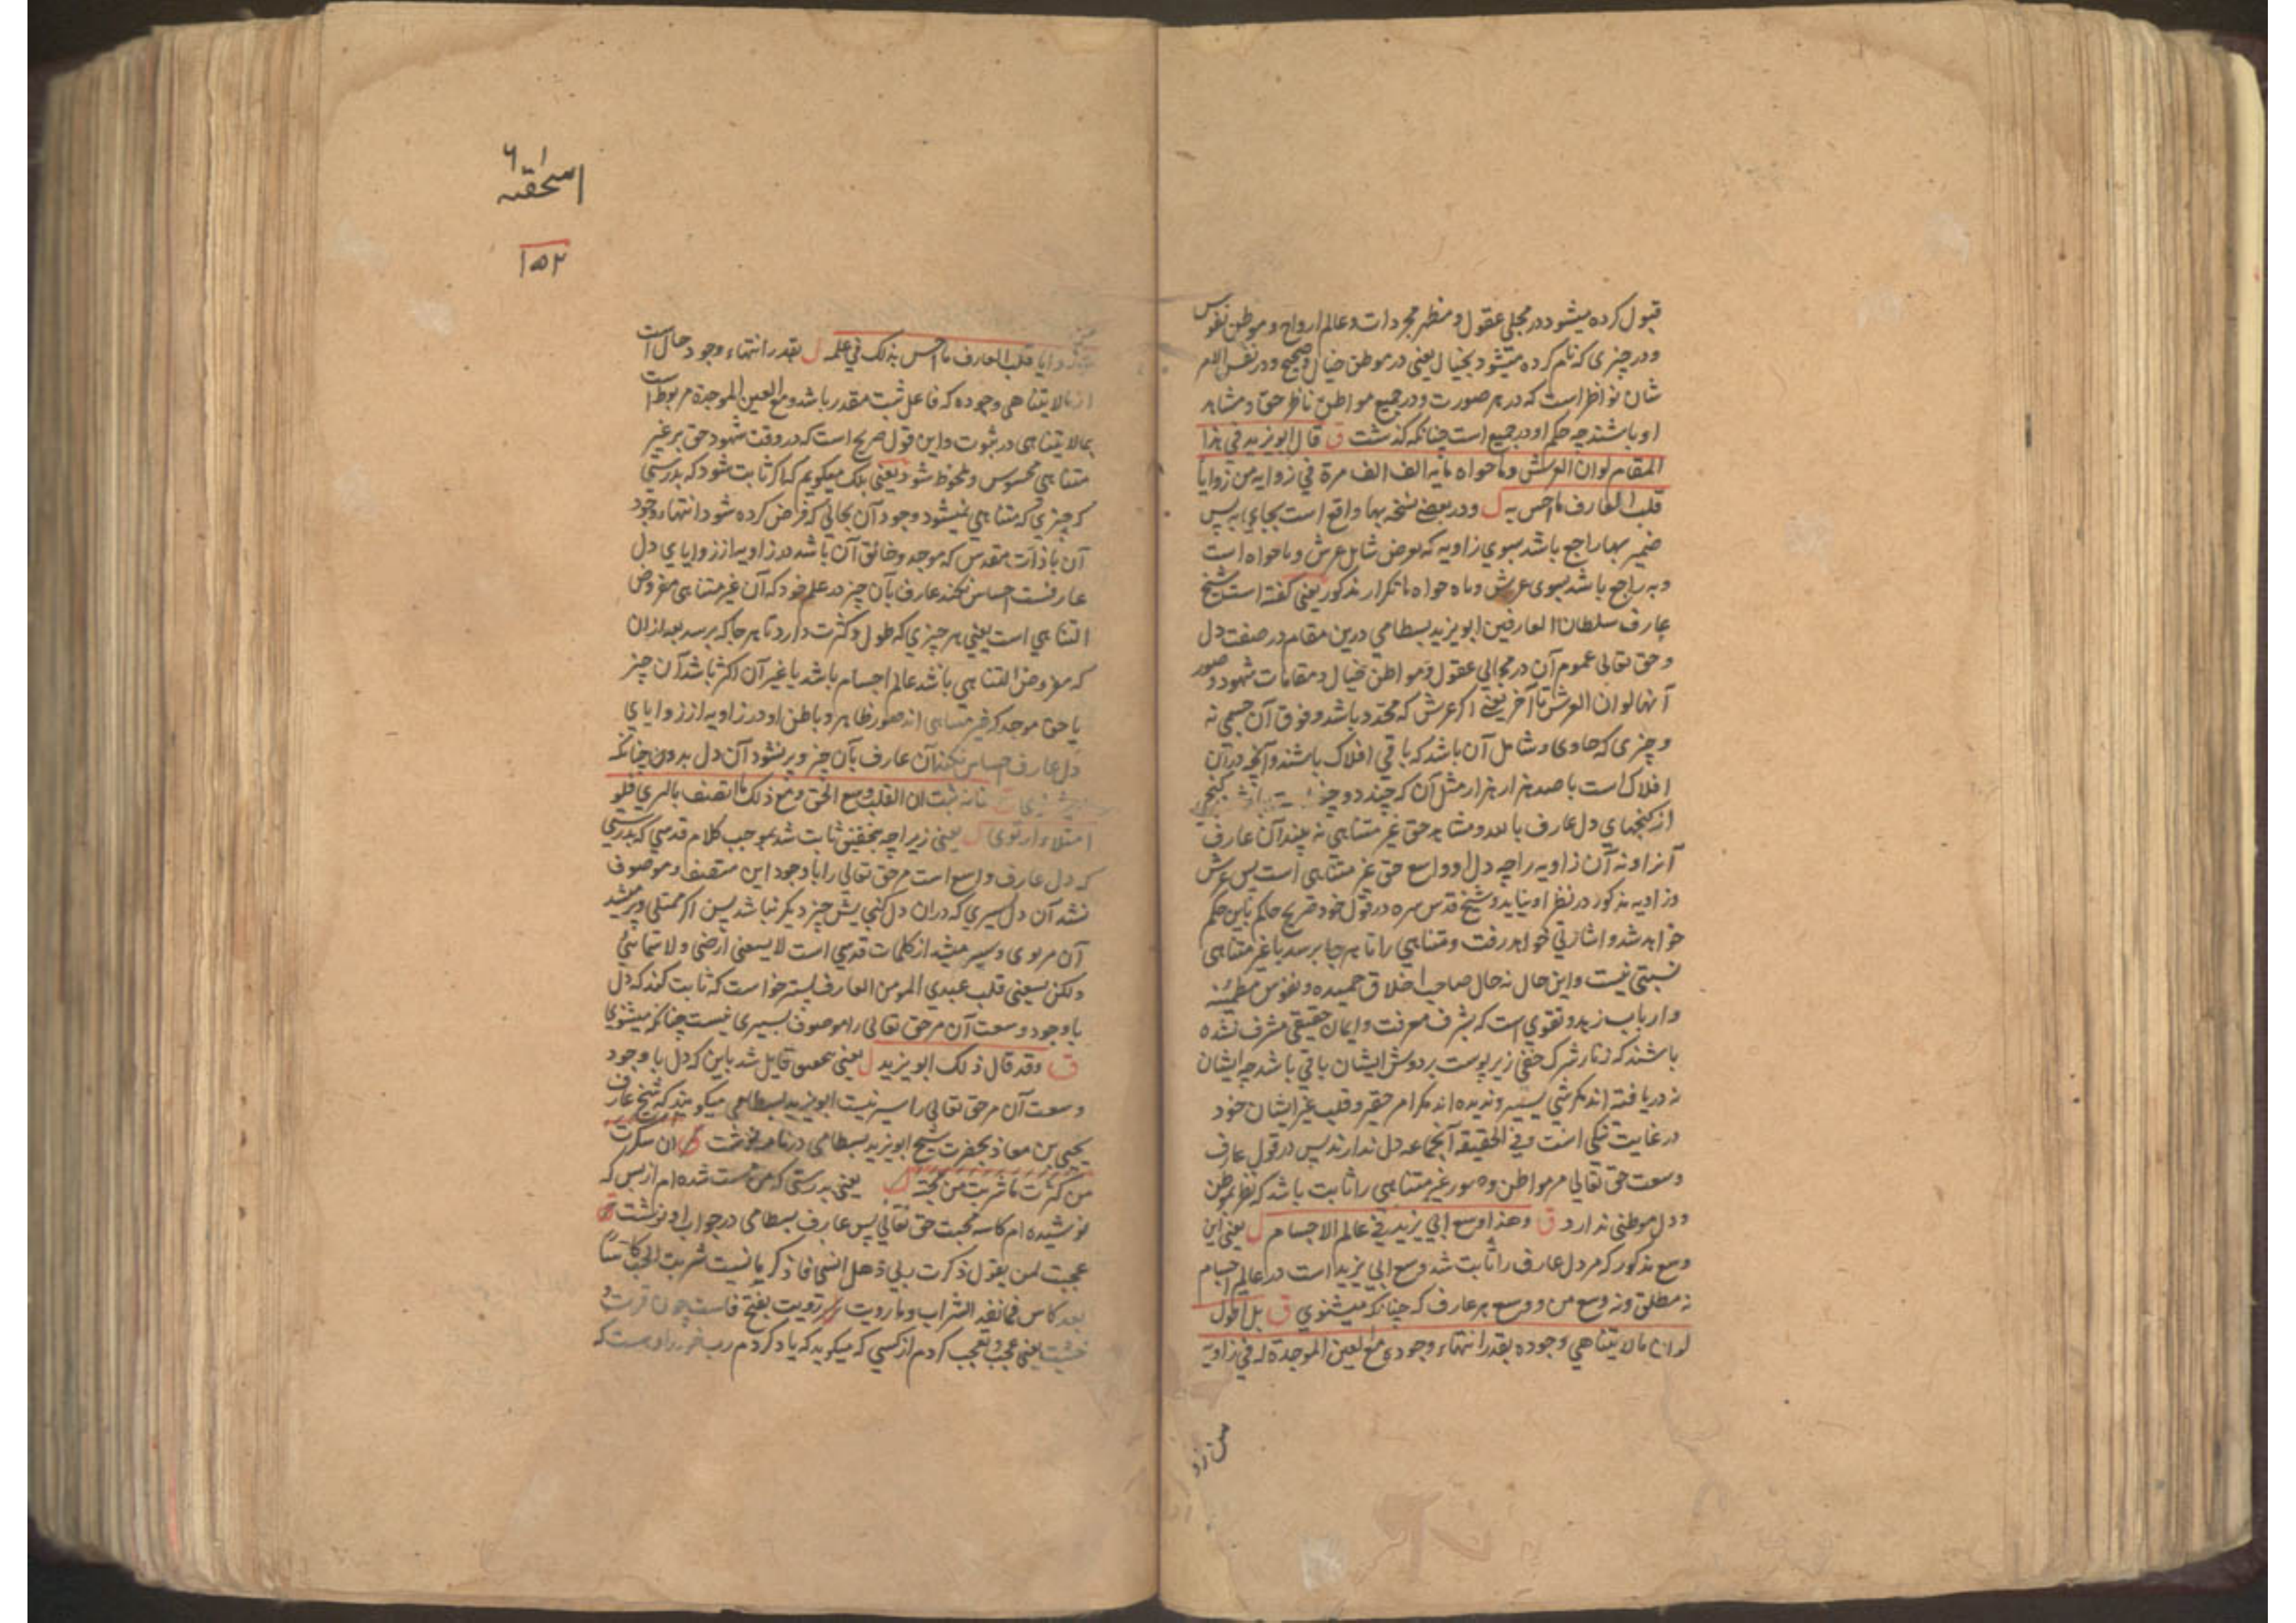 قبول کرده میشود در مجلی عقول و مظهر مجردات و عالم ارواح و موطن نفوس
و در چیزی که نام کرده میشود بخیال یعنی در موطن خیال صحیح و در نفس الامر
شان نواظر است که در هر صورت و در جمیع مواطن ناظر حق و مشاهد
او باشند چه حکم او در جمیع است چنانکه گذشت ق قال ابو یزید فی هذا
المقام لو ان العرش وما حواه مایه الف الف مرة فی زوایه من زوایا
قلب العارف ما احس به ل و در بعضے نسخه بها واقع است بجای به پس
ضمیر بها راجع باشد بسوی زاویه که بعوض شامل عرش و ما حواه است
و به راجع باشد بسوی عرش و ما حواه با تکرار مذکور یعنی گفته است شیخ
عارف سلطان العارفین ابو یزید بسطامی درین مقام در صفت دل
و حق تعالی عموم آن در مجالی عقول و مواطن خیال و مقامات شهود و صور
آنها لو ان العرش تا آخر یعنی اگر عرش که محدد باشد و فوق آن جسمی نه
و چیزی که حاوی و شامل آن باشد که باقی افلاک باشند و آنچه در آن
افلاک است با صد هزار هزار مثل آن که چند دو چند
از کنجهای دل عارف بالله و مشاهد حق غیر متناهی نه بیند آن عارف
آنرا و نه آن زاویه را چه دل او واسع حق غیر متناهی است پس عرش
و زاویه مذکور در نظر او نیاید و شیخ قدس سره در قول خود صریح حاکم باین حکم
خواهد شد و اشارتی خواهد رفت و متناهی را تا هر جا برسد با غیر متناهی
نسبتی نیست و این حال نه حال صاحب اخلاق حمیده و نفوس مطمئنه
و ارباب زهد و تقوی است که بشرف معرفت و ایمان حقیقی مشرف نشده
باشند که زنار شرک خفی زیر پوست بر دوش ایشان باقی باشد چه ایشان
نه دریافته اند مگر شی یسیر و ندیده اند مگر ام حقیر و قلب غیر ایشان خود
در غایت تنگی است و فی الحقیقه آنجماعه دل ندارند پس در قول عارف
وسعت حق تعالی مر مواطن و صور غیر متناهی را ثابت باشد که نظر بموطن
و دل موطنی ندارد ق وهذا وسع ابی یزید فی عالم الاجسام ل یعنی این
وسع مذکور که مر دل عارف را ثابت شد وسع ابی یزید است در عالم اجسام
نه مطلق و نه وسع من و وسع هر عارف که چنانکه میشنوی ق بل اقول
لو ان ما لا یتناهی وجوده یقدر انتهاء وجوده مع العین الموجدة له فی زاویة
من زو
اسحقیه
١٥٢
من زوایا قلب العارف ما احس بذلک فی علمه ل یقدر انتهاء وجود حال است
از ما لا یتناهی وجوده که فاعل ثبت مقدر باشد و مع العین الموجدة مربوط است
بما لا یتناهی در ثبوت و این قول صریح است که در وقت شهود حق بر غیر
متناهی محسوس و ملحوظ شود یعنی بلک میگویم که اگر ثابت شود که بدرستی
که چیزی که متناهی نمیشود وجود آن بحالی که فرض کرده شود انتهاء وجود
آن با ذات مقدس که موجد و خالق آن باشد در زاویه از زوایای دل
عارفست احساس نکند عارف بآن چیز در علم خود که آن غیر متناهی مفروض
التناهی است یعنی هر چیزی که طول و کثرت دارد تا هر جا که برسد بعد ازان
که مفروض التناهی باشد عالم اجسام باشد یا غیر آن اکثر باشد آن چیز
با حق موجد که غیر متناهی اند صور ظاهر و باطن او در زاویه از زوایای
دل عارف احساس نکند آن عارف بآن چیز و پر نشود آن دل بدون چنانکه
میشنوی ق فانه ثبت ان القلب وسع الحق و مع ذلک ما اتصف بالری فلو
امتلاء ارتوی ل یعنی زیراچه بتحقیق ثابت شد بموجب کلام قدسی که بدرستی
که دل عارف واسع است مر حق تعالی را با وجود این متصف و موصوف
نشد آن دل بسیری که دران دل گنجایش چیز دیگر نباشد پس اگر ممتلی و پر میشد
آن مروی و سیر میشد از کلمات قدسی است لا یسعنی ارضی ولا سمائی
ولکن یسعنی قلب عبدی المومن العارف بستر خواست که ثابت کند که دل
با وجود وسعت آن مر حق تعالی را موصوف بسیری نیست چنانکه میشنوی
ق وقد قال ذلک ابو یزید ل یعنی بتحقیق قایل شد باین که دل با وجود
وسعت آن مر حق تعالی را سیر نیست ابو یزید بسطامی میگویند که شیخ عارف
یحیی بن معاذ بحضرت شیخ ابو یزید بسطامی در نامه نوشت انی سکرت
من کثرت ما شربت من محبته ل یعنی بدرستی که من مست شده ام از بس که
نوشیده ام کاسه محبت حق تعالی پس عارف بسطامی در جواب او نوشت
عجبت لمن یقول ذکرت ربی فهل انسی فاذکر ما نسیت شربت الحب کاسا
بعد کاس فما نفد الشراب وما رویت رویت بفتح فاست چون قربت و
خشیت یعنی عجب و تعجب کردم از کسی که میگوید که یاد کردم رب خود را و